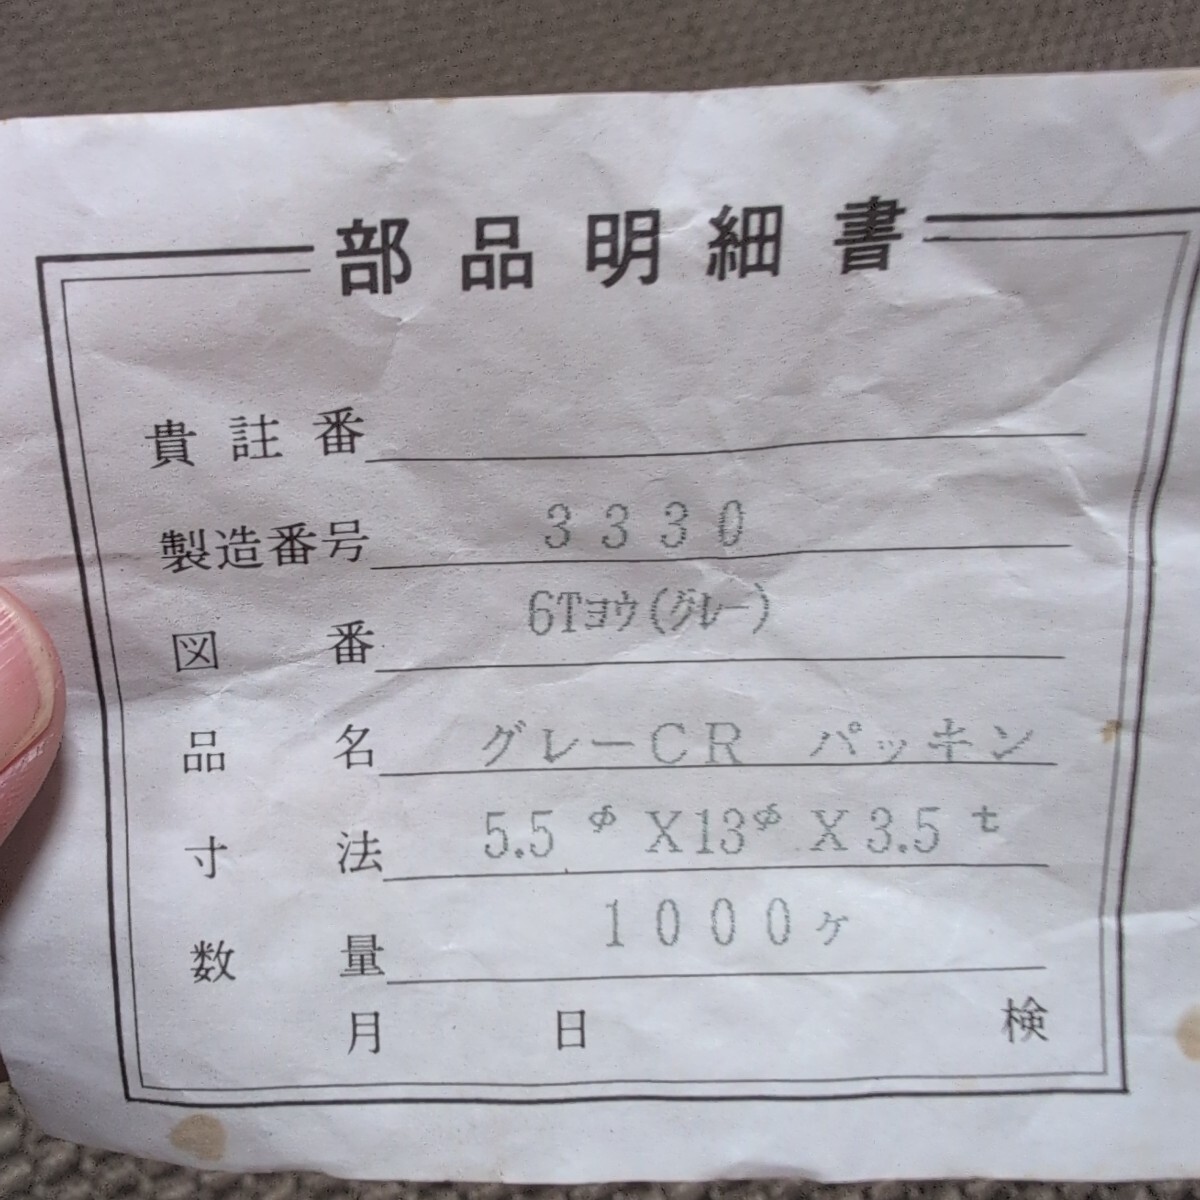 部品明細書
貴註番
製造番号 3330
図番 6Tヨウ(グレー)
品名 グレーCR パッキン
寸法 5.5φX13φX3.5t
数量 1000ヶ
月 日 検